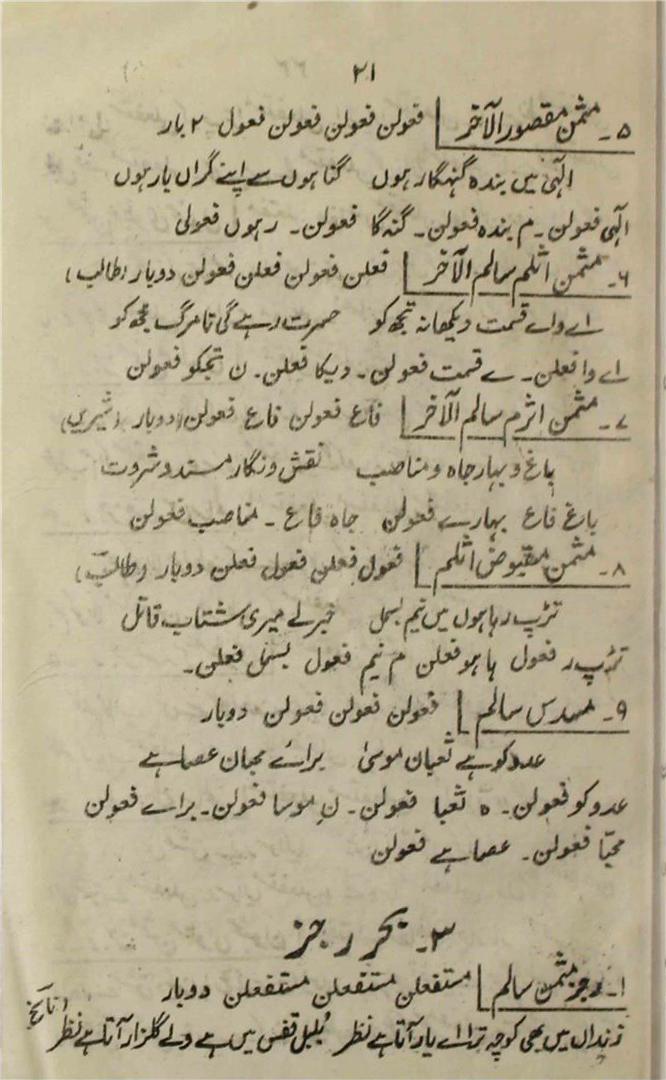 ۲۱
۵۔ مثمن مقصور الآخر فعولن فعولن فعولن فعول ۲ بار
الٰہی میں بندہ گنہگار ہوں گناہوں سے اپنے گراں بار ہوں
الٰہی فعولن۔ م بندہ فعولن۔ گنہ گا فعولن۔ رہوں فعولی
۶۔ مثمن اثلم سالم الآخر فعلن فعولن فعلن فعولن دوبار (طالب)
اے واے قسمت دیکھا نہ تجھ کو حسرت رہے گی تا مرگ مجھ کو
اے وا فعلن۔ ے قسمت فعولن۔ دیکا فعلن۔ ن تجکو فعولن
۷۔ مثمن اثرم سالم الآخر فاع فعولن فاع فعولن دوبار (شیری)
باغ و بہار جاہ و مناصب نقش و نگار مسند و ثروت
باغ فاع بہارے فعولن جاہ فاع۔ مناصب فعولن
۸۔ مثمن مقبوض اثلم فعول فعلن فعول فعلن دوبار (طالب)
تڑپ رہا ہوں میں نیم بسمل خبر لے میری شتاب قاتل
تڑپ ر فعول ہا ہو فعلن م نیم فعول بسمل فعلن۔
۹۔ مسدس سالم فعولن فعولن فعولن دوبار
عدو کو ہے ثعبان موسیٰ براے محبان عصا ہے
عدو کو فعولن۔ ہ ثعبا فعولن۔ ن موسا فعولن۔ براے فعولن
محبا فعولن۔ عصا ہے فعولن
۳۔ بحر رجز
۱۔ رجز مثمن سالم مستفعلن مستفعلن مستفعلن دوبار
زنداں میں بھی کوچہ ترا اے یار آتا ہے نظر بلبل قفس میں ہے ولے گلزار آتا ہے نظر